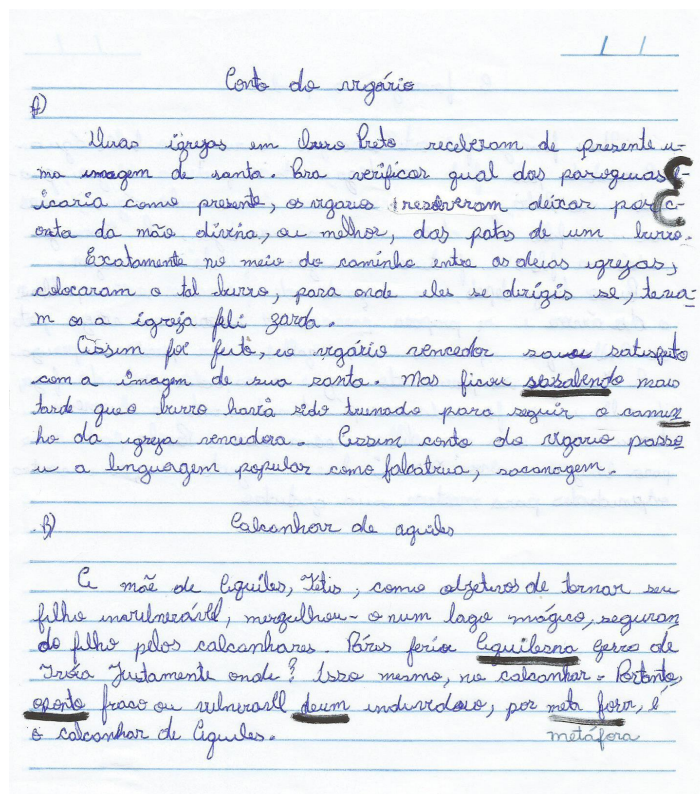 Conto do vigário
A)
Duas igrejas em Ouro Preto receberam de presente u-
ma imagem de santa. Para verificar qual das paroguias f-
icaria como presente, os vigarios resolveram deixar por c-
onta da mão divina, ou melhor, das patas de um burro.
Exatamente no meio do caminho entre as duas igrejas,
colocaram o tal burro, para onde eles se dirigis se, teria-
m os a igreja feli zarda.
Assim foi feito, eo vigário vencedor saiu satisfeito
com a imagem de sua santa. Mas ficou sesabendo mais
tarde queo burro havia sido treinado para seguir o camin
ho da igreja vencedora. Assim conto do vigario passo
u a linguagem popular como falcatrua, sacanagem.
B) Calcanhar de aquiles
A mãe de Aquiles, Tétis, como objetivos de tornar seu
filho invulnerável, mergulhou-o num lago mágico, seguran
do filho pelos calcanhares. Páris feriu Aquilesna gerra de
Tróia Justamente onde? Isso mesmo, no calcanhar. Portanto,
oponto fraco ou vulneravel deum individuo, por meta fora, é
o calcanhar de Aquiles.
metáfora